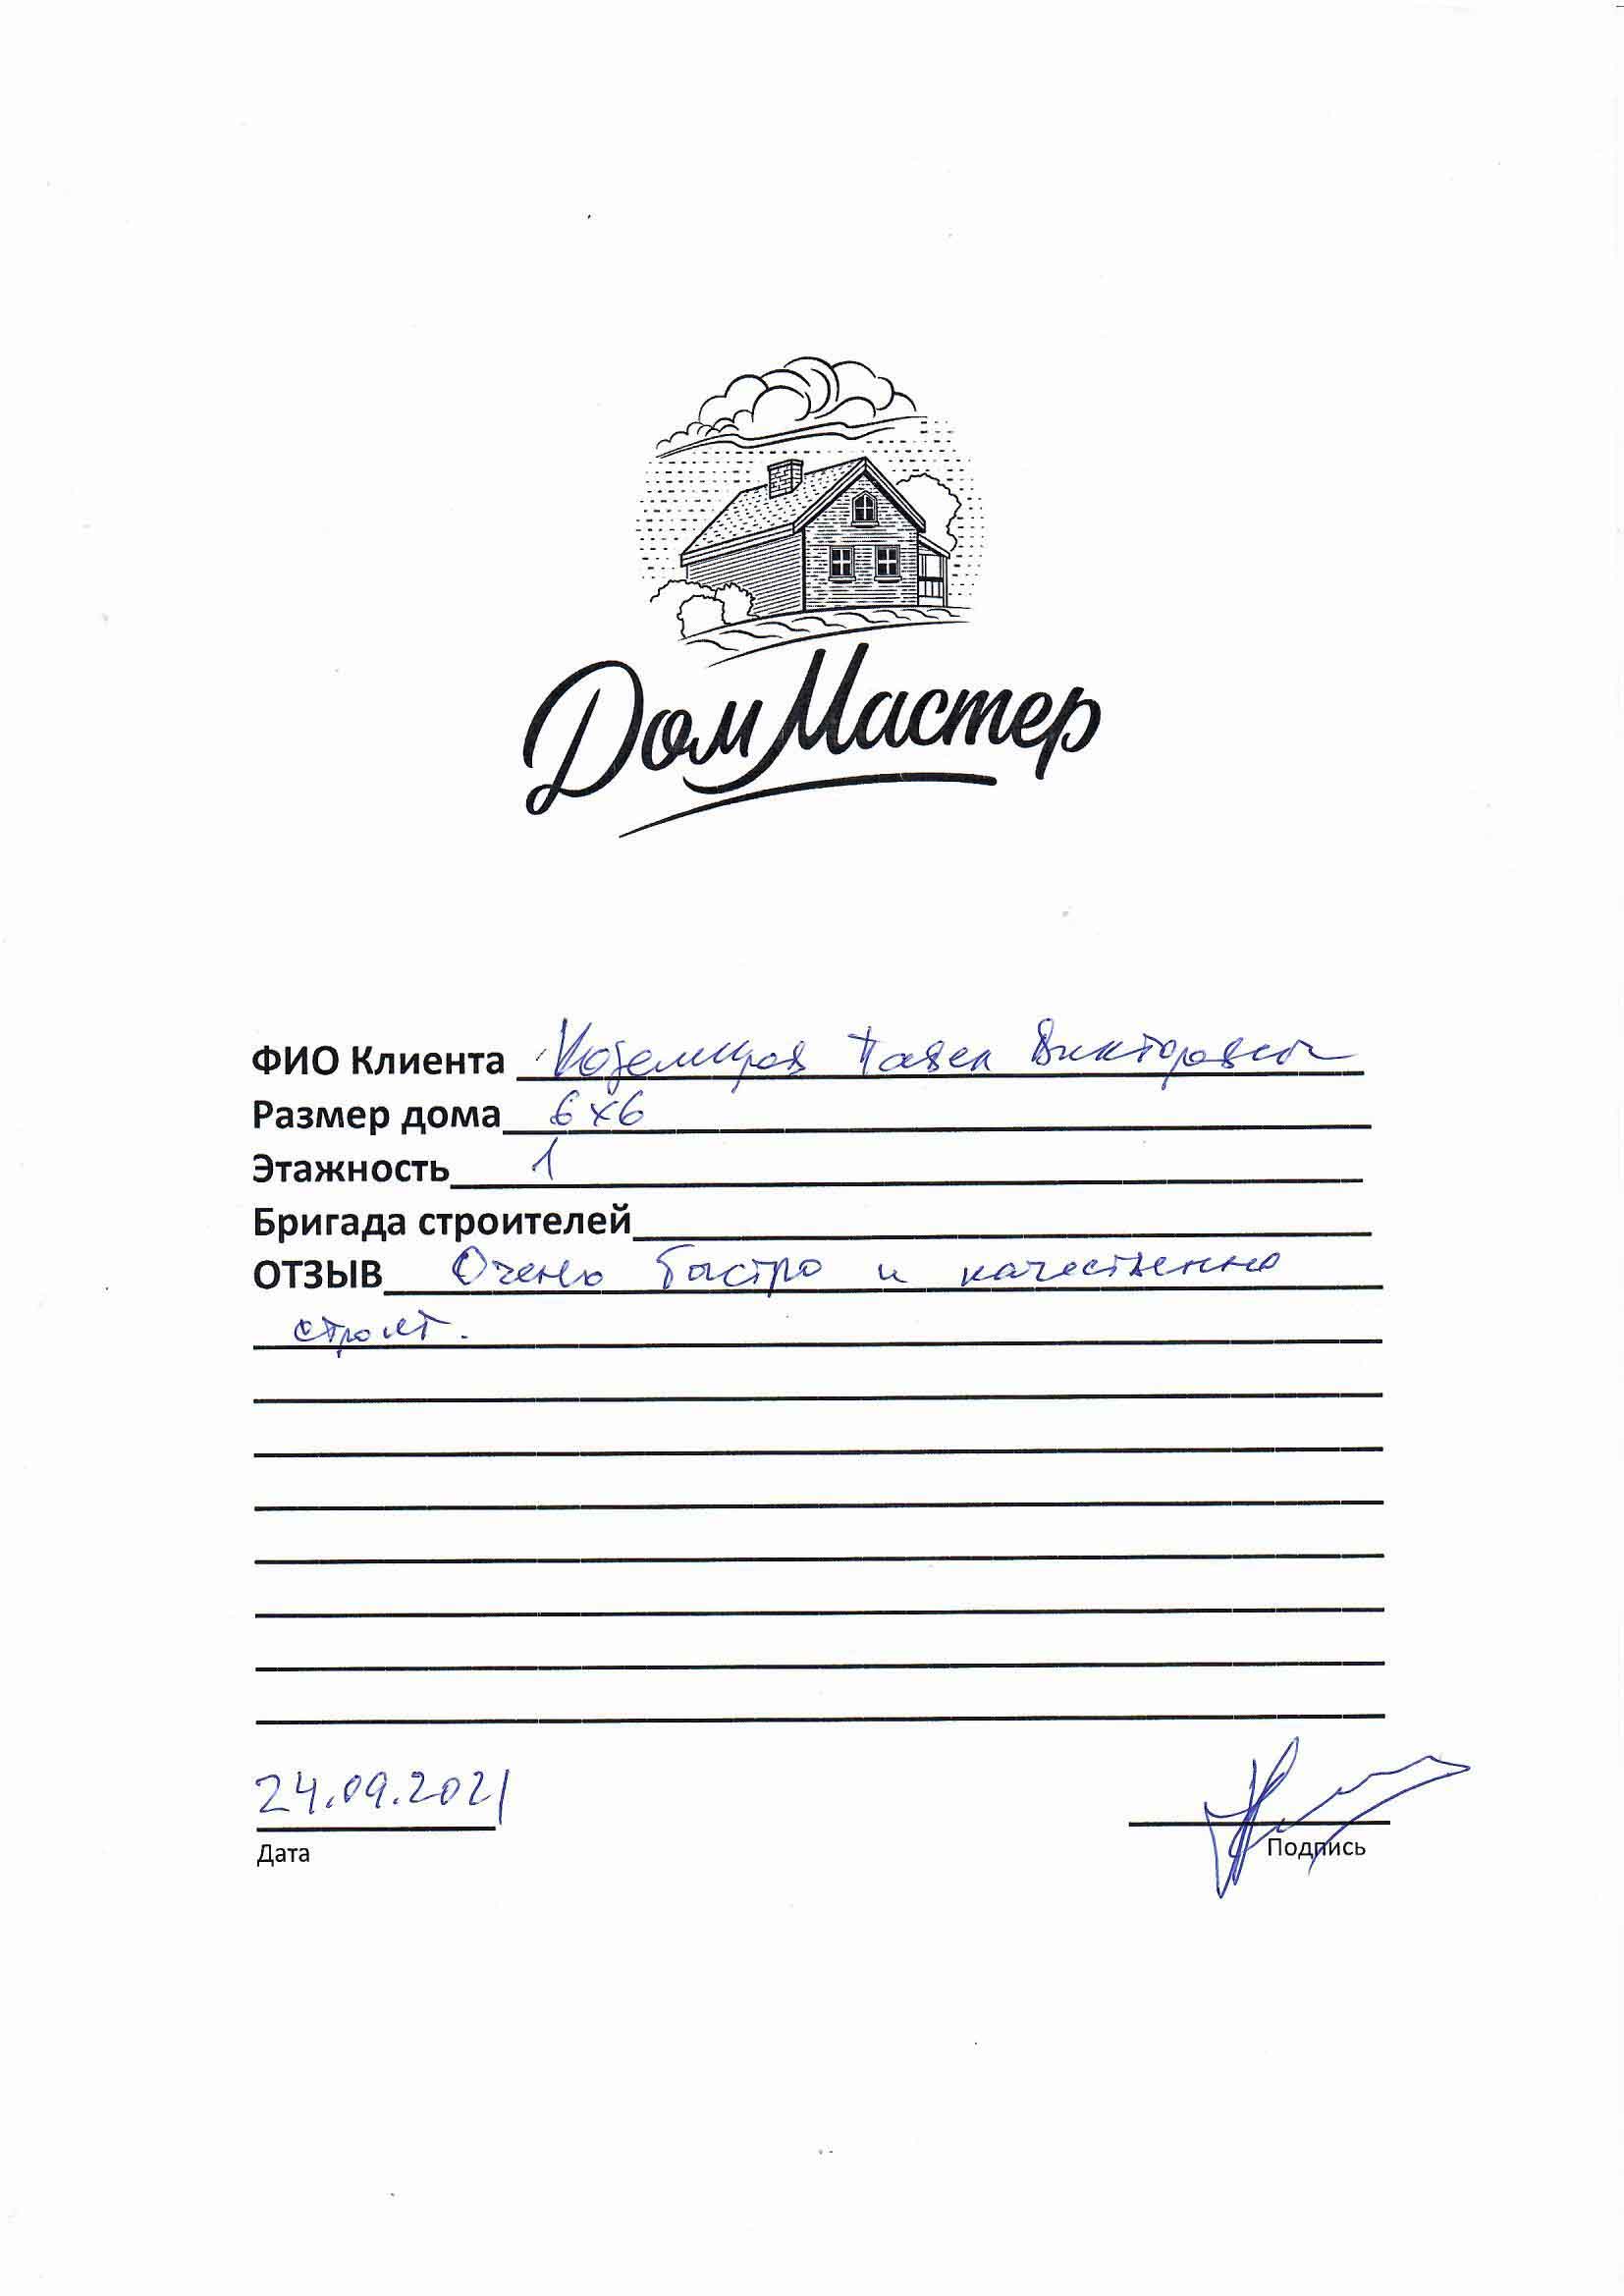 ДомМастер
ФИО Клиента Павел Викторович
Размер дома 6х6
Этажность 1
Бригада строителей
ОТЗЫВ Очень быстро и качественно
строят.
24.09.2021
Дата
Подпись